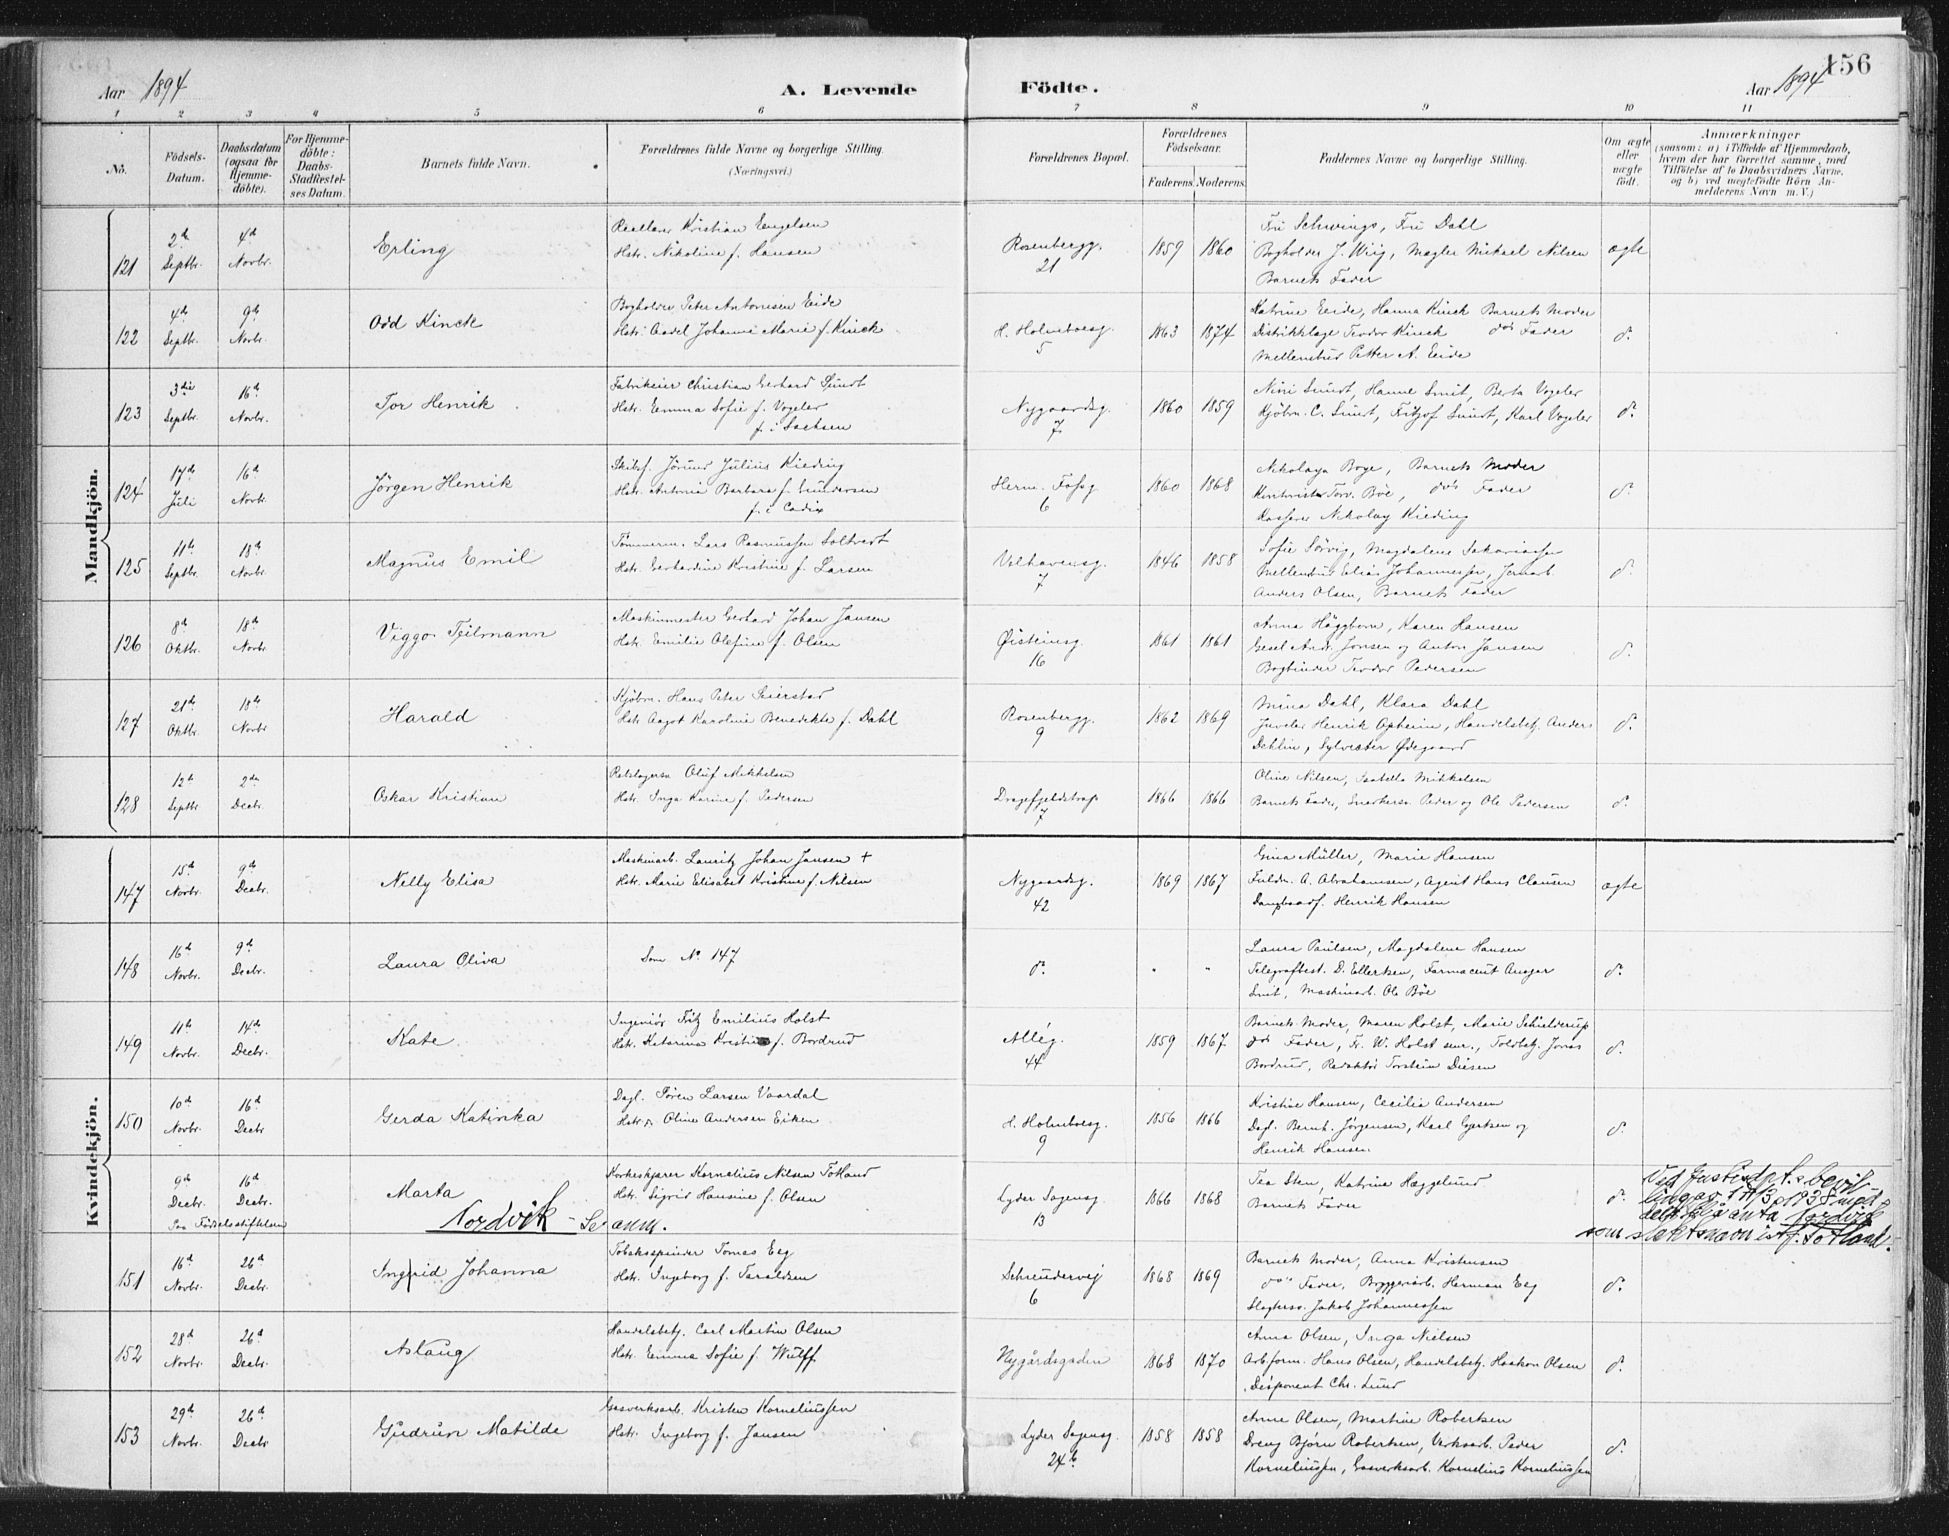 156
Aar 1894
A. Levende Födte.
Aar 1894
1 2 3 4 5 6 7 8 9 10 11
No.
Födsels-Datum.
Daabsdatum (ogsaa for Hjemme-döbte).
For Hjemme-döbte: Daabs-Stadfæstel-ses Datum.
Barnets fulde Navn.
Forældrenes fulde Navne og borgerlige Stilling. (Næringsvei.)
Forældrenes Bopæl.
Forældrenes Födselsaar.
Faderens. Moderens.
Faddernes Navne og borgerlige Stilling.
Om ægte eller uægte födt.
Anmærkninger
(saasom: a) i Tilfælde af Hjemmedaab, hvem der har forrettet samme, med Tilföielse af to Daabsvidners Navne, og b) ved uægtefödte Börn Anmelderens Navn m. V.)
Mandkjön.
121 2de Septbr. 4d Novbr. Erling
Kristian Engelsen
Hstr. Nikoline f. Hansen
Rosenbergg. 21
1859 1860
Fru Schwings, Fru Dahl
Bogholder J. Wiig, Mægler Mikael Nilsen
Barnets Fader
ægte
122 4d Septbr. 9d Novbr. Odd Kinck
Bogholder Peter Antonisen Eide
Hstr. Aadel Johanne Marie f. Kinck
H. Holmboesg. 5
1863 1874
Katrine Eide, Hanna Kinck Barnets Moder
Distriktslæge Teodor Kinck do Fader
Petter A. Eide
do
123 3die Septbr. 16d Novbr. Tor Henrik
Fabrikeier Christian Gerhard Sundt
Hstr. Emma Sofie f. Vogeler
f. i Sachsen
Nygaardsg. 7
1860 1859
Nini Sundt, Hanne Smit, Berta Vogeler
Kjöbm. C. Sundt, Fritjof Sundt, Karl Vogeler
do
124 17d Juli 16d Novbr. Jörgen Henrik
Skibsf. Jörund Julius Kieding
Hstr. Antonie Barbara f. Gundersen
f. i Cadix
Herm. Fossg. 6
1860 1868
Nikolaya Boge, Barnets Moder
Torv. Böe, do Fader
Nikolay Kieding
do
125 11te Septbr. 18d Novbr. Magnus Emil
Tömmerm. Lars Rasmussen Soltvedt
Hstr. Gerhardine Kristine f. Larsen
Velhavensg. 7
1846 1858
Sofie Sörvig, Magdalene Sakariassen
Elias Johannessen, Jernarb.
Anders Olsen, Barnets Fader
do
126 8d Oktbr. 18d Novbr. Viggo Teilmann
Maskinmester Gerhard Johan Jansen
Hstr. Emilie Olefine f. Olsen
Øisteinsg. 16
1861 1861
Anna Häggbom, Karen Hansen
Gesel Andr. Jonsen og Anton Jansen
Bogbinder Teodor Pedersen
do
127 21de Oktbr. 18d Novbr. Harald
Kjöbm. Hans Peter Seierstad
Hstr. Aagot Karoline Benedikte f. Dahl
Rosenbergg. 9
1862 1869
Mina Dahl, Klara Dahl
Juveler Henrik Opheim, Handelsbetj. Anders
Dehlin, Sylvester Ødegaard
do
128 12te Septbr 2den Decbr. Oskar Kristian
Oluf Mikkelsen
Hstr. Inga Karine f. Pedersen
Dragefjeldstrap. 7
1866 1866
Oline Nilsen, Isabella Mikkelsen
Barnets Fader, Snedkersv. Peder og Ole Pedersen
do
Kvindekjön.
147 15d Novbr. 9d Decbr. Nelly Elisa
Maskinarb. Lauritz Johan Jansen +
Hstr. Marie Elisabet Kristine f. Nilsen
Nygaardsg. 42
1869 1867
Gina Müller, Marie Hansen
Fuldm. A. Abrahamsen, Agent Hans Clausen
Dampbaadf. Henrik Hansen
ægte
148 16d Novbr. 9d Decbr. Laura Oliva
Som No. 147
do " "
Laura Paulsen, Magdalene Hansen
Telegrafbest. D. Ellertsen, Farmaceut Ansgar
Smit, Maskinarb. Ole Böe
do
149 11te Novbr. 14de Decbr. Kate
Ingeniör Fritz Emilius Holst
Hstr. Katarina Kristine f. Bordrud
Alleg. 44
1859 1867.
Barnets Moder, Maren Holst, Marie Schielderup
do Fader, Fr. W. Holst senr., Toldbetj. Jonas
Bordrud, Redaktör Torstein Diesen
do
150 10d Novbr. 16d Decbr Gerda Katinka
Dagl. Sören Larsen Vaardal
Hstr. Oline Andersen Eiken
H. Holmboesg. 9
1856 1866
Kristine Hansen, Cecilia Andersen
Dagl. Bernh. Jörgensen, Karl Gjertsen og
Henrik Hansen
do
9d Decbr. 16d Decbr. Marta
Paa Födselsstiftelsen
Nordvik - Se anm.
Korkeskjærer Kornelius Nilsen Totland
Hstr. Sigrid Hansine f. Olsen
Lyder Sagensg. 13
1866 1868
Tea Sten, Katrine Heggelund
Barnets Fader
do
Ved Justisdpt.s bevil-
ling av 17/3 1938
anta Nordvik
som slektsnavn istf. Totland.
151 16d Novbr. 26d Decbr. Ingrid Johanna
Tobaksspinder Tomas Eeg
Hstr. Ingeborg f. Taraldsen
Schreudervej 6
1868 1869
Barnets Moder, Anna Kristensen
do Fader, Bryggeriarb. Herman Eeg
Slagtersv. Jakob Johannessen
do
152 28d Novbr. 26d Decbr. Aslaug
Handelsbetj. Carl Martin Olsen
Hstr. Emma Sofie f. Wulff
Nygårdsgaden
1868 1870
Anna Olsen, Inga Nielsen
Arb.form. Hans Olsen, Handelsbetj. Haakon Olsen
Disponent Chr. Lund
do
153 29d Novbr. 26d Decbr Gudrun Matilde
Gasverksarb. Kristen Korneliussen
Hstr. Ingeborg f. Jansen
Lyder Sagensg. 24b
1858 1858
Anne Olsen, Martine Robertsen
Dreng Björn Robertsen, Verksarb. Peder
Korneliussen, Gasverksarb. Kornelius Korneliussen
do